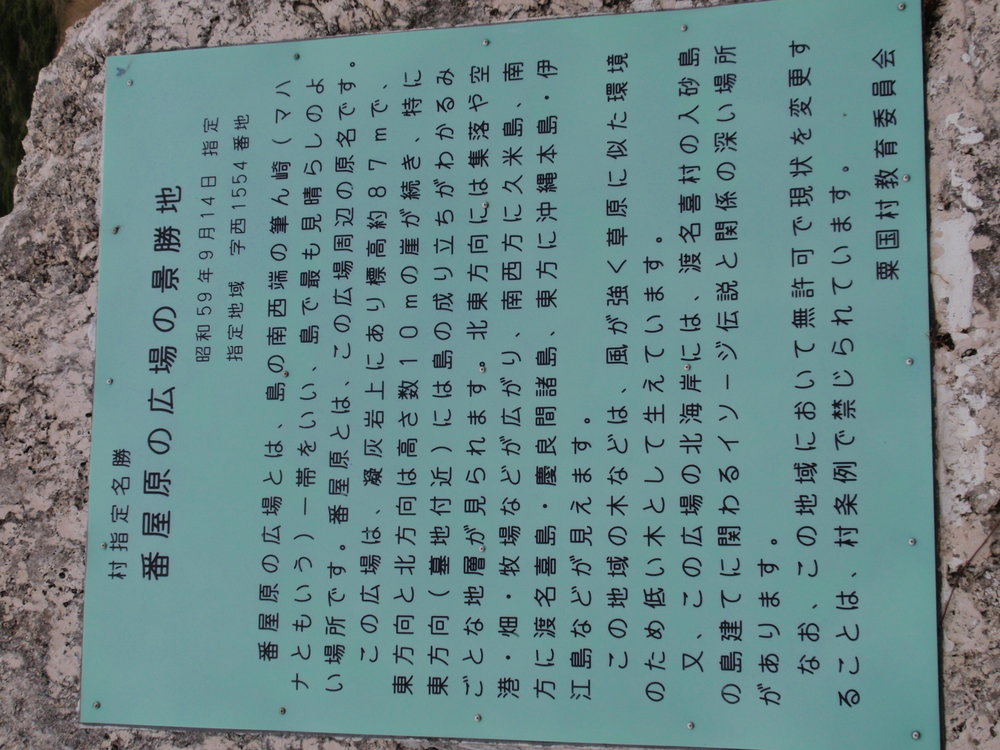 村指定名勝
番屋原の広場の景勝地
昭和59年9月14日 指定
指定地域 字西1554番地
番屋原の広場とは、島の南西端の筆ん崎(マハ
ナともいう)一帯をいい、島で最も見晴らしのよ
い場所です。番屋原とは、この広場周辺の原名です。
この広場は、凝灰岩上にあり標高約87mで、
東方向と北方向は高さ数10mの崖が続き、特に
東方向(墓地付近)には島の成り立ちがわかるみ
ごとな地層が見られます。北東方向には集落や空
港・畑・牧場などが広がり、南西方に久米島、南
方に渡名喜島・慶良間諸島、東方に沖縄本島・伊
江島などが見えます。
この地域の木などは、風が強く草原に似た環境
のため低い木として生えています。
又、この広場の北海岸には、渡名喜村の入砂島
の島建てに関わるイソージ伝説と関係の深い場所
があります。
なお、この地域において無許可で現状を変更す
ることは、村条例で禁じられています。
粟国村教育委員会